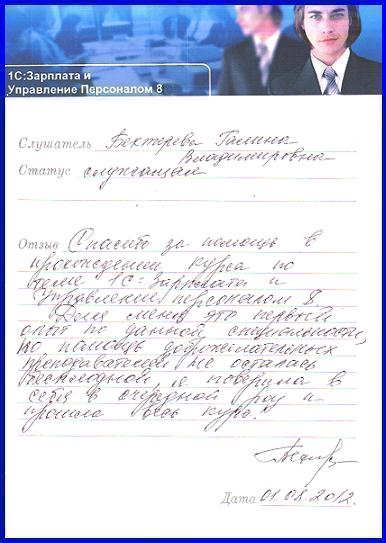 1С:Зарплата и
Управление Персоналом 8
Слушатель Бектерева Галина
Владимировна
Статус служащая
Отзыв Спасибо за помощь в
прохождении курса по
теме 1С: Зарплата и
Управление персоналом 8.
Для меня это первый
опыт по данной специальности,
но помощь доброжелательных
преподавателей не осталась
бесплодной, я поверила в
себя в очередной раз и
прошла весь курс!
Дата 01.08.2012.